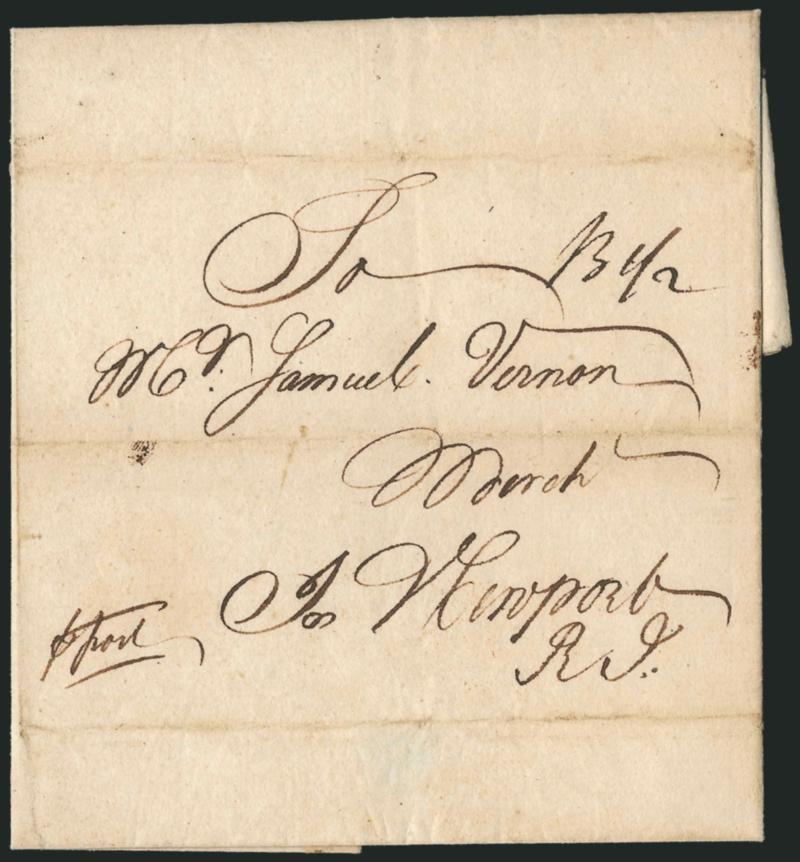 To
Mr. Samuel. Vernon
Merch
In Newport
R I.
post